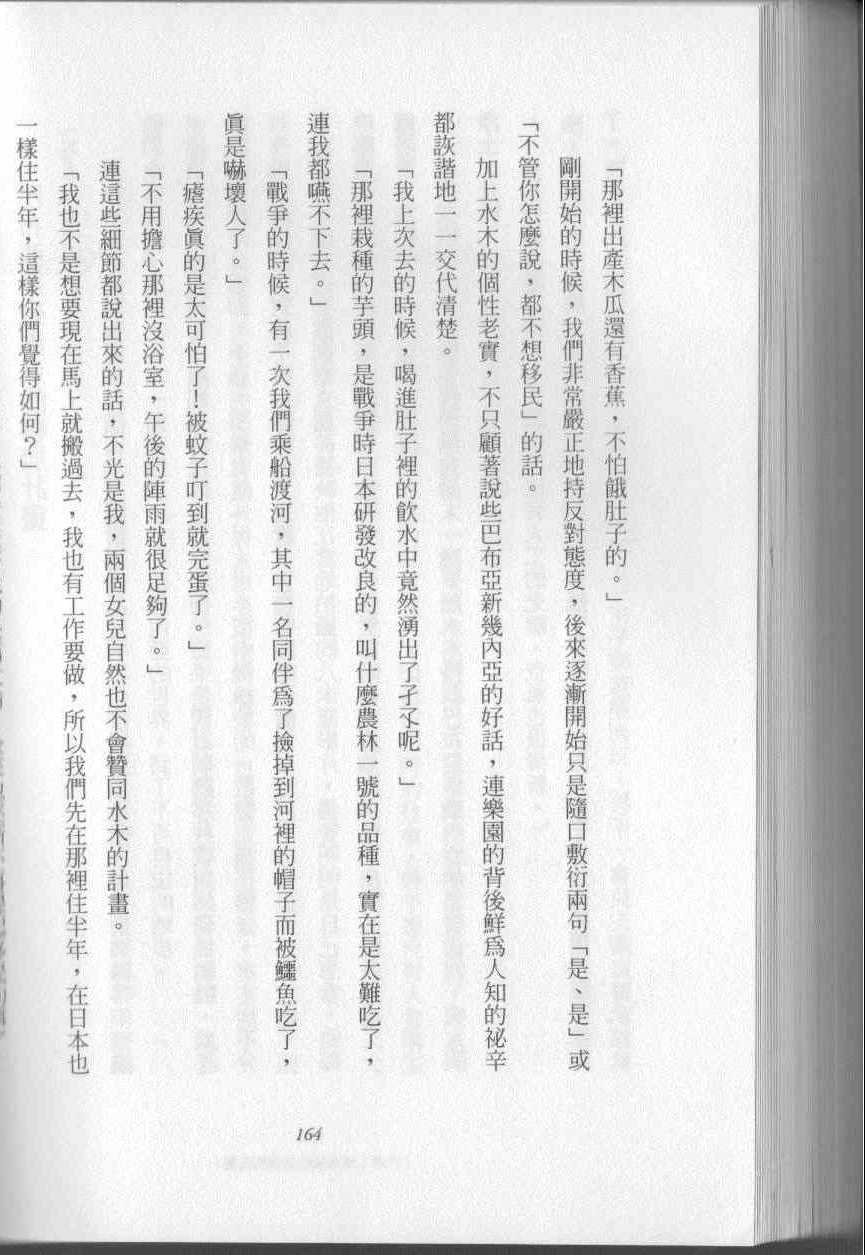 「那裡出產木瓜還有香蕉，不怕餓肚子的。」
剛開始的時候，我們非常嚴正地持反對態度，後來逐漸開始只是隨口敷衍兩句「是、是」或
「不管你怎麼說，都不想移民」的話。
加上水木的個性老實，不只顧著說些巴布亞新幾內亞的好話，連樂園的背後鮮爲人知的祕辛
都詼諧地一一交代清楚。
「我上次去的時候，喝進肚子裡的飲水中竟然湧出了孑孓呢。」
「那裡栽種的芋頭，是戰爭時日本研發改良的，叫什麼農林一號的品種，實在是太難吃了，
連我都嚥不下去。」
「戰爭的時候，有一次我們乘船渡河，其中一名同伴爲了撿掉到河裡的帽子而被鱷魚吃了，
眞是嚇壞人了。」
「瘧疾眞的是太可怕了！被蚊子叮到就完蛋了。」
「不用擔心那裡沒浴室，午後的陣雨就很足夠了。」
連這些細節都說出來的話，不光是我，兩個女兒自然也不會贊同水木的計畫。
「我也不是想要現在馬上就搬過去，我也有工作要做，所以我們先在那裡住半年，在日本也
一樣住半年，這樣你們覺得如何？」
164